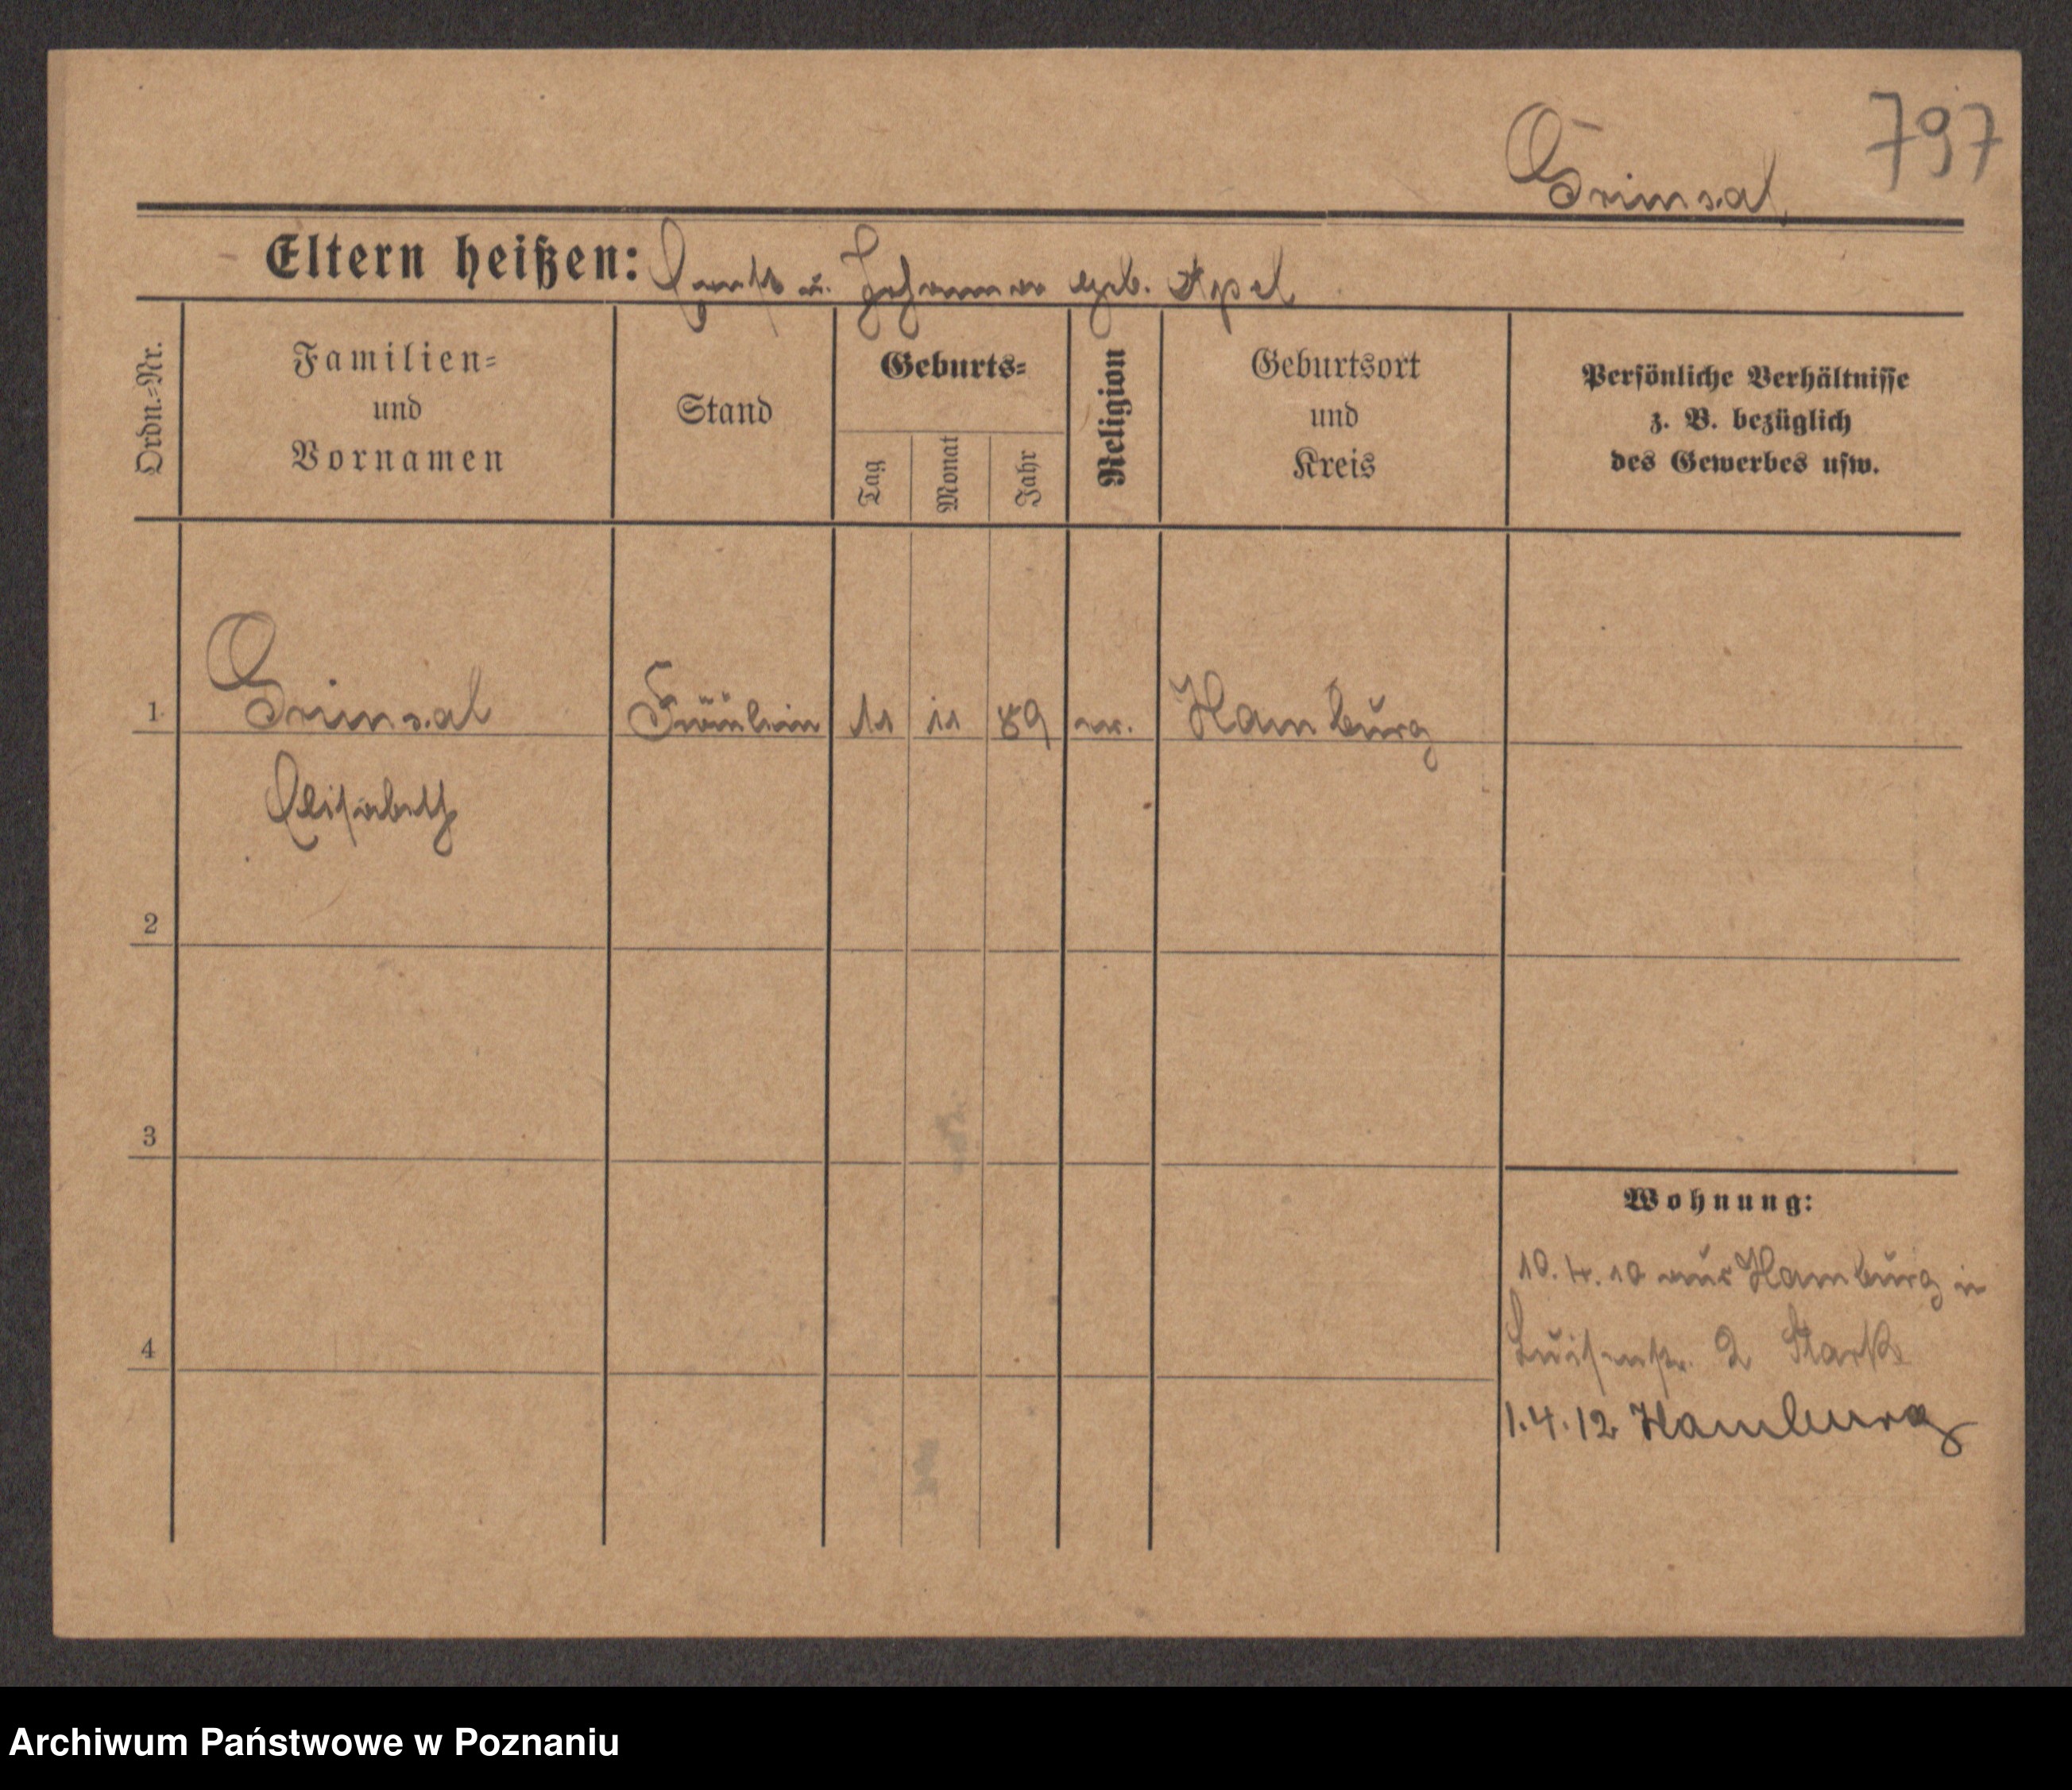 797
Grimsal
Eltern heißen: Ernst u. Johanna geb. Apel
Ordn.=Nr.
Familien=
und
Vornamen
Stand
Geburts=
Tag
Monat
Jahr
Religion
Geburtsort
und
Kreis
Persönliche Verhältnisse
z. B. bezüglich
des Gewerbes usw.
1 Grimsal Fräulein 11 11 89 ev. Hamburg
Elisabeth
2
3
4
Wohnung:
10.4.10 aus Hamburg in
Luisenstr. 2 Stark
1.4.12 Hamburg
Archiwum Państwowe w Poznaniu